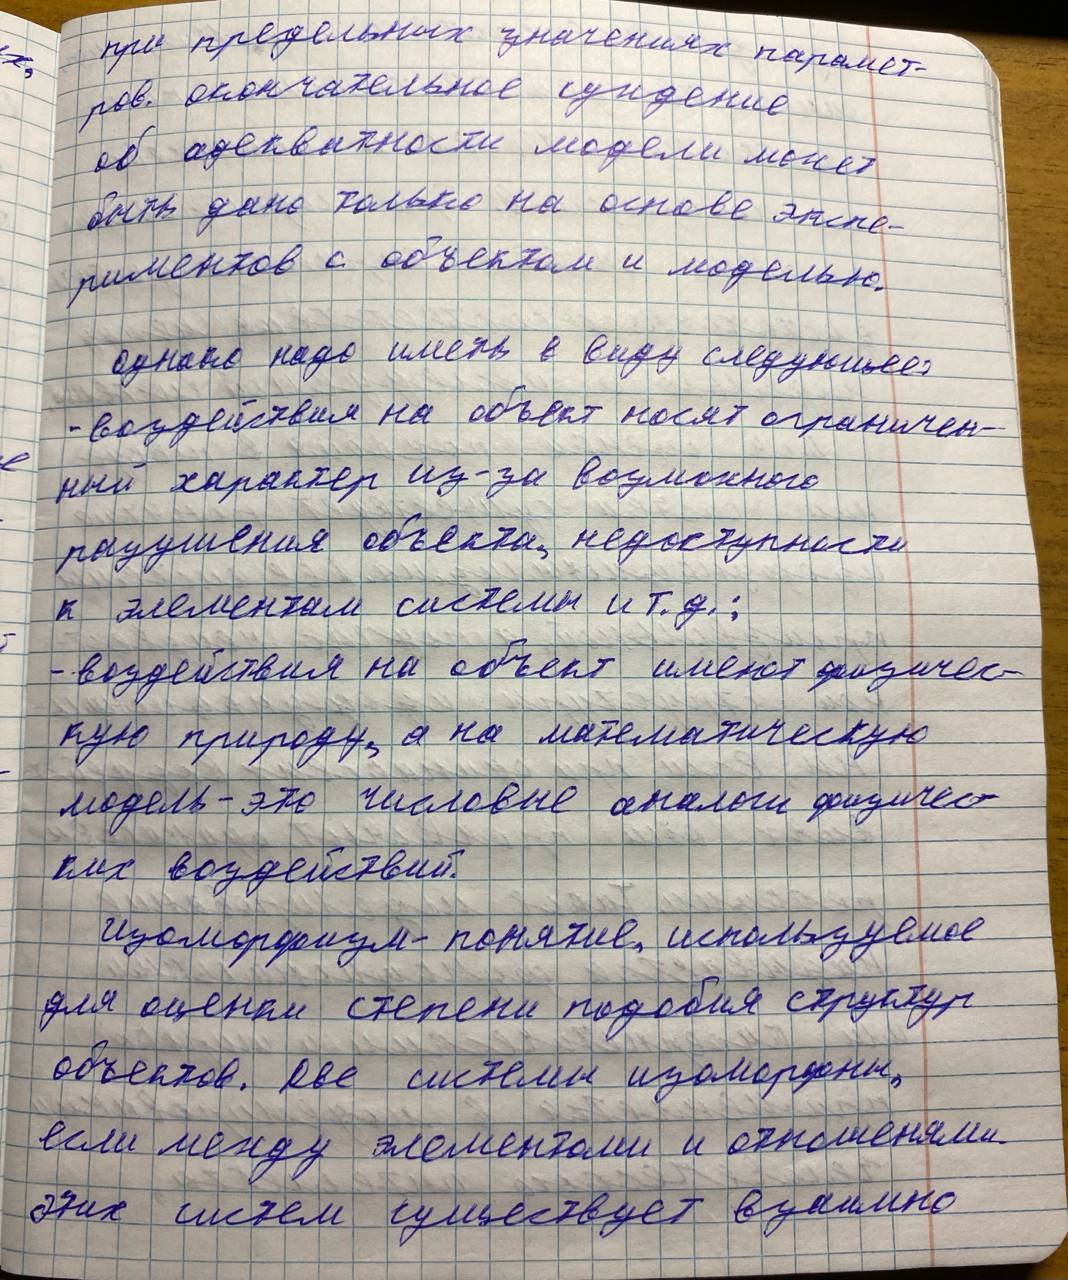 при предельных значениях парамет-
ров. окончательное суждение
об адекватности модели может
быть дано только на основе экспе-
риментов с объектом и моделью.
однако надо иметь в виду следующее:
- воздействия на объект носят ограничен-
ный характер из-за возможного
разушения объекта, недоступности
к элементам системы и т.д.;
- воздействия на объект имеют физичес-
кую природу, а на математическую
модель - это числовые аналоги физичес-
ких воздействий.
Изоморфизм - понятие, используемое
для оценки степени подобия структур
объектов. Две системы изоморфны,
если между элементами и отношенями
этих систем существует взаимно